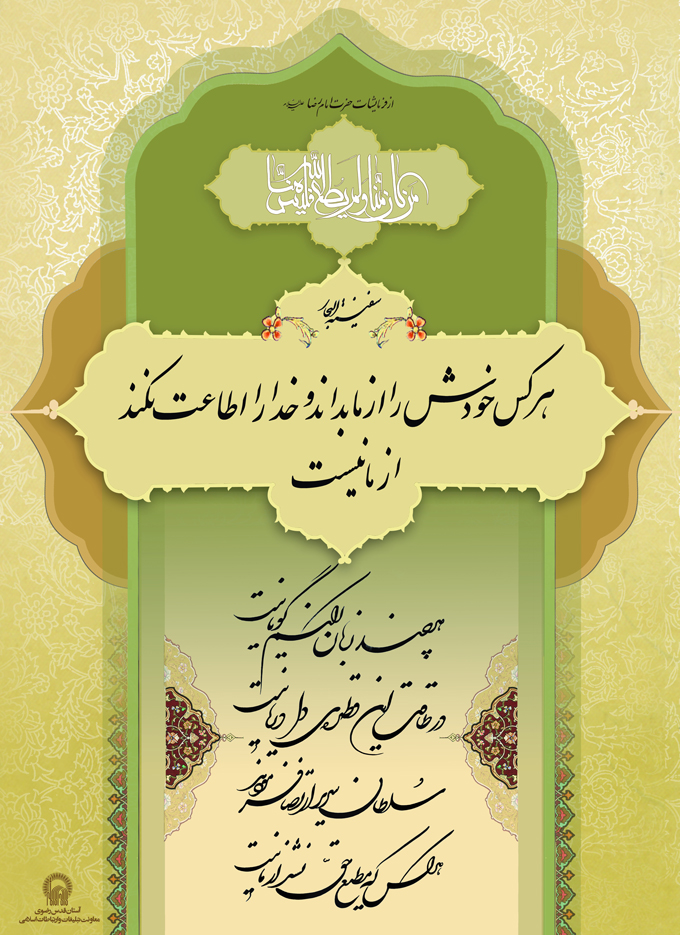 از فرمایشات حضرت امام رضا علیه‌السلام
من کان منا و لم یطع الله فلیس منا
سفینة البحار
هر کس خودش را از ما بداند و خدا را اطاعت نکند
از ما نیست
هر چند زبان الکن گویا نیست
در طاقت این قطره دل دریا نیست
سلطان سریر ارتضا فرمودند
هر کس که مطیع حق نشد از ما نیست
آستان قدس رضوی
معاونت تبلیغات و ارتباطات اسلامی